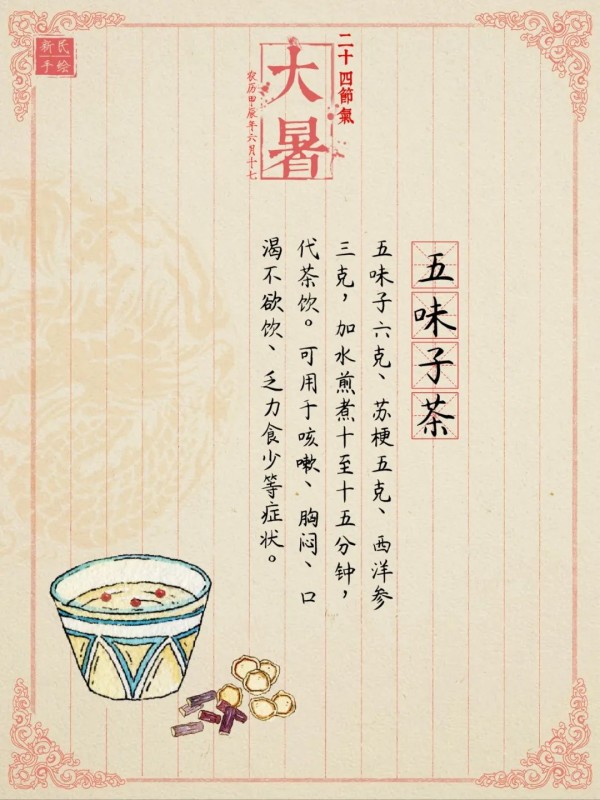 新民
手绘
二十四節氣
大暑
农历甲辰年六月十七
五味子茶
五味子六克、苏梗五克、西洋参
三克，加水煎煮十至十五分钟，
代茶饮。可用于咳嗽、胸闷、口
渴不欲饮、乏力食少等症状。